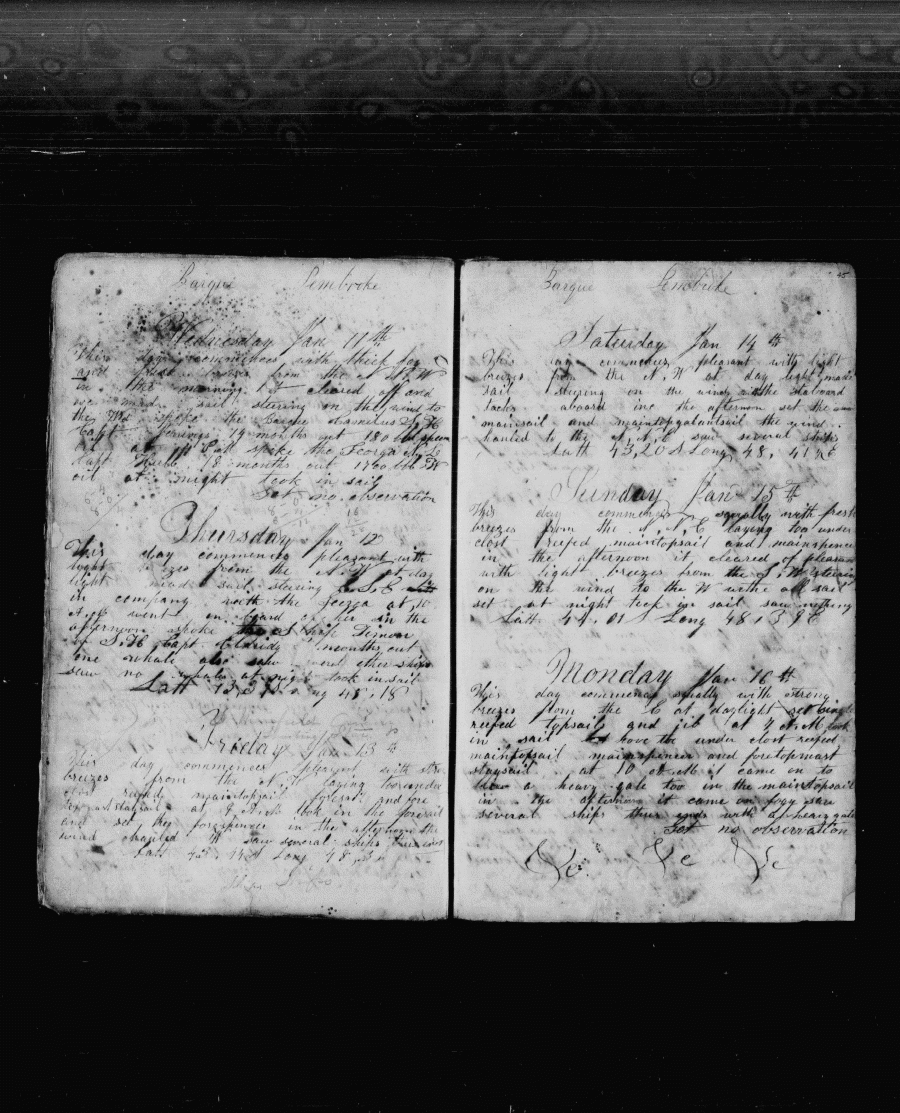 Barque Pembroke
Wednesday Jan 11th
This day commences with thick fog
and breezes from the N. W
in the morning it cleared off and
we made sail steering on the wind to
the spoke the Barque
Capt Jenings 19 months out 180 bbl sperm
at 4 P.M spoke the Georga
Capt 18 months out 1700 bbl
oil at night took in sail
Got no observation
Thursday Jan 12
This day commences pleasant with
light breezes from the at day
light made sail steering S, E
in company with the Georga at 10
A.M went on board of her in the
afternoon spoke the Ship Timor
of S, H Capt months out
one whale also saw other ships
saw no whales at night took in sail
Latt Long 48, 18
Frieday Jan 13th
This day commences pleasant with
breezes from the N laying too under
clost reefed maintopsail foresail and fore
topmaststaysail at 9 A.M took in the foresail
and set the forespencer in the afternoon the
wind hauled W saw several ships
Latt Long 48
Barque Pembroke
45
Saturday Jan 14th
This day commences pleasant with light
breezes from the N, W at day light made
sail stering on the wind with the starboard
tacks aboard in the afternoon set the
mainsail and maintopgalantsail the wind
hauled to the N, N, E saw several ships
Latt 43, 20 S Long 48, 41 E
Sunday Jan 15th
This day commences squally with fresh
breezes from the N N E laying too under
clost reefed maintopsail and mainspencer
in the afternoon it cleared of pleasant
with light breezes from the S, W stering
on the wind to the W withe all sail
set at night took in sail saw nothing
Latt 44, 01 S Long 48, 39 E
Monday Jan 16th
This day commences squally with strong
breezes from the E at daylight set
reefed topsails and jib at 7 A.M took
in sail hove too under clost reefed
maintopsail mainspencer and foretopmast
staysail at 10 A.M it came on to
blow a heavy gale too in the maintopsail
in the afternoon it came on fogy saw
several ships thus ends with a heavy gale
Got no observation
&c &c &c